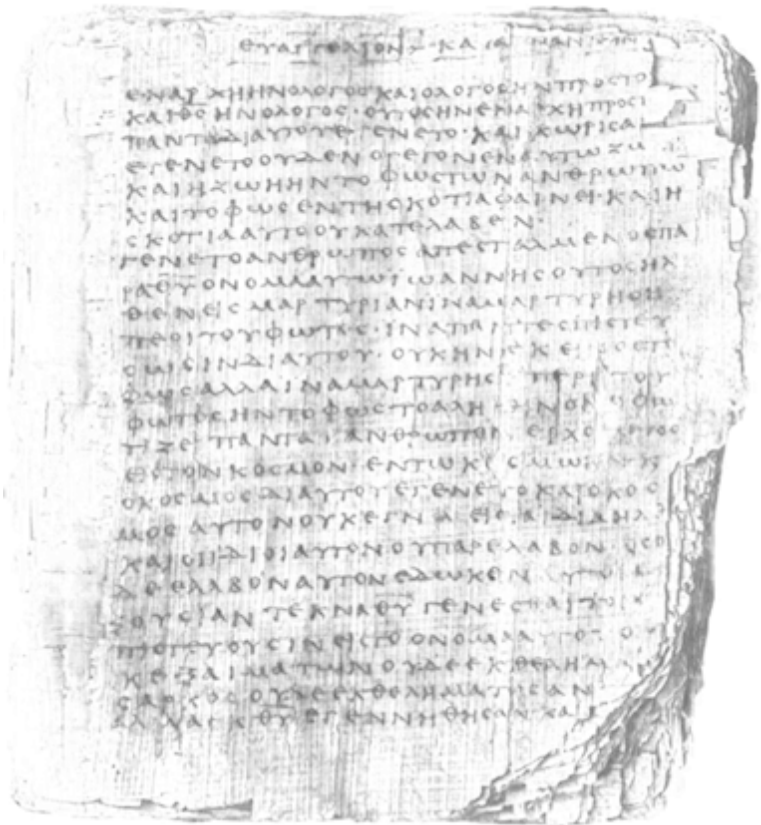 ευαγγελιον κατα ϊωαννην
εναρχηηνολογοςκαιολογοςηνπροςτο
καιθςηνολογος·ουτοςηνεναρχηπροςτ
πανταδιαυτουεγενετο·καιχωριςαυ
εγενετοουδενογεγονενεναυτωζω
καιηζωηηντοφωςτωνανθρωπω
καιτοφωςεντηςκοτιαφαινει·καιη
ςκοτιααυτοουκατελαβεν·
εγενετοανθρωποςαπεσταλμενοςπα
ραθυονομααυτωϊωαννηςουτοςηλ
θενειςμαρτυριανιναμαρτυρηςη
περιτουφωτος·ιναπαντεςπιςτευ
ςωςινδιαυτου·ουκηνεκεινοςτο
φωςαλλαιναμαρτυρηςηπεριτου
φωτοςηντοφωςτοαληθινονοφω
τιζειπανταανθρωπονερχομενον
ειςτονκοςμον·εντωκοςμωηνκ
οκοςμοςδιαυτουεγενετοκαιοκος
μοςαυτονουκεγνωειςταιδιαηλ
καιοιϊδιοιαυτονουπαρελαβον·οςο
δεελαβοναυτονεδωκεναυτοις
εξουςιαντεκναθυγενεςθαιτοις
πιςτευουςινειςτοονομααυτου·ο
κεξαιματωνουδεεκθεληματ
ςαρκοςουδεεκθεληματοςαν
αλλαεκθυεγεννηθηςανκαι